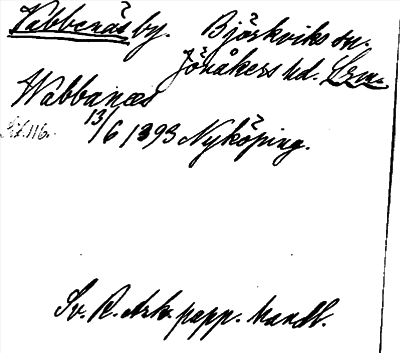 Vabbenäs by. Björkviks sn.
Jönåkers hd. Srm.
Wabbanæs
13/6 1393 Nyköping.
Sv. R. Ark. papp. handl.